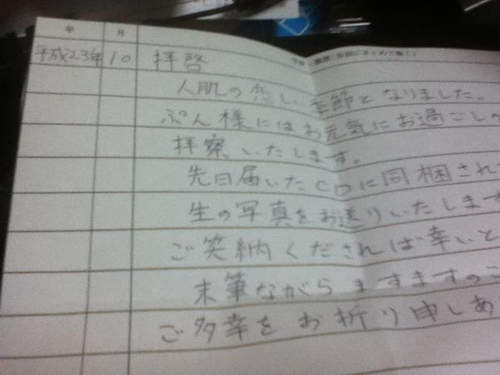 年 月
平成23年 10 拝啓
人肌の恋しい季節となりました。
ぷん様にはお元気にお過ごしの
拝察いたします。
先日届いたCDに同梱され
生の写真をお送りいたします
ご笑納くだされば幸いと
末筆ながらますますのご
ご多幸をお祈り申しあ